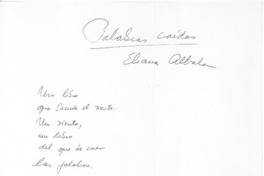 Palabras caídas
Eliana Albala
Un libro
que
Un viento,
un libro
del que se caen
las palabras.